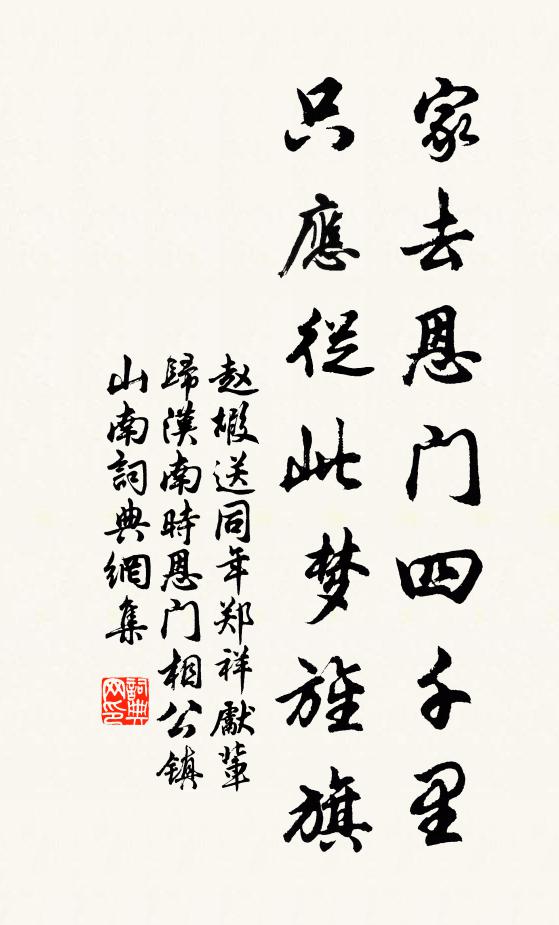 家去恩门四千里
只應從此梦旌旗
赵嘏送同年郑祥獻輩
歸漢南時恩门相公镇
山南詞典網集
詞典
网印